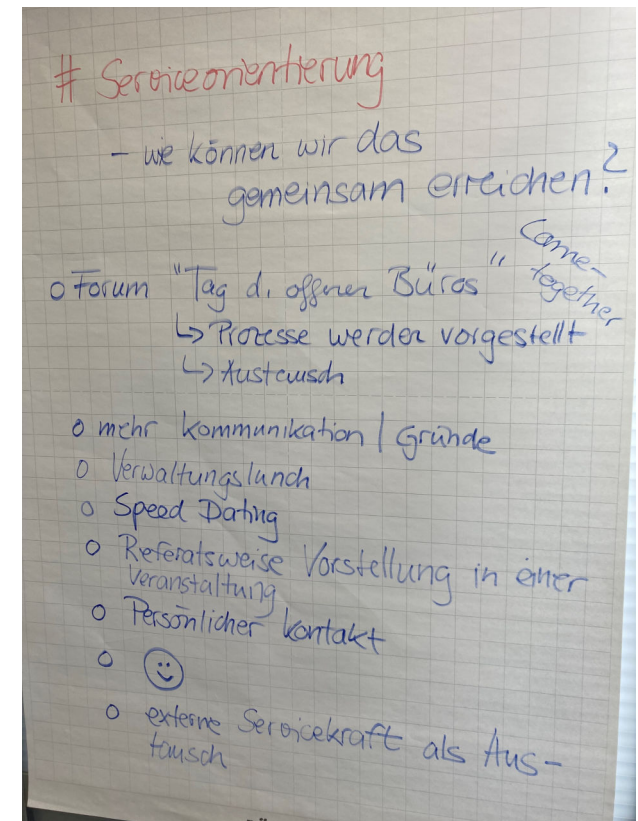 # Serviceorientierung
- wie können wir das
gemeinsam erreichen?
o Forum "Tag d. offenen Büros"
Come-
together
↳ Prozesse werden vorgestellt
↳ Austausch
o mehr Kommunikation / Gründe
o Verwaltungslunch
o Speed Dating
o Referatsweise Vorstellung in einer
Veranstaltung
o Persönlicher Kontakt
o ☺
o externe Servicekraft als Aus-
tausch